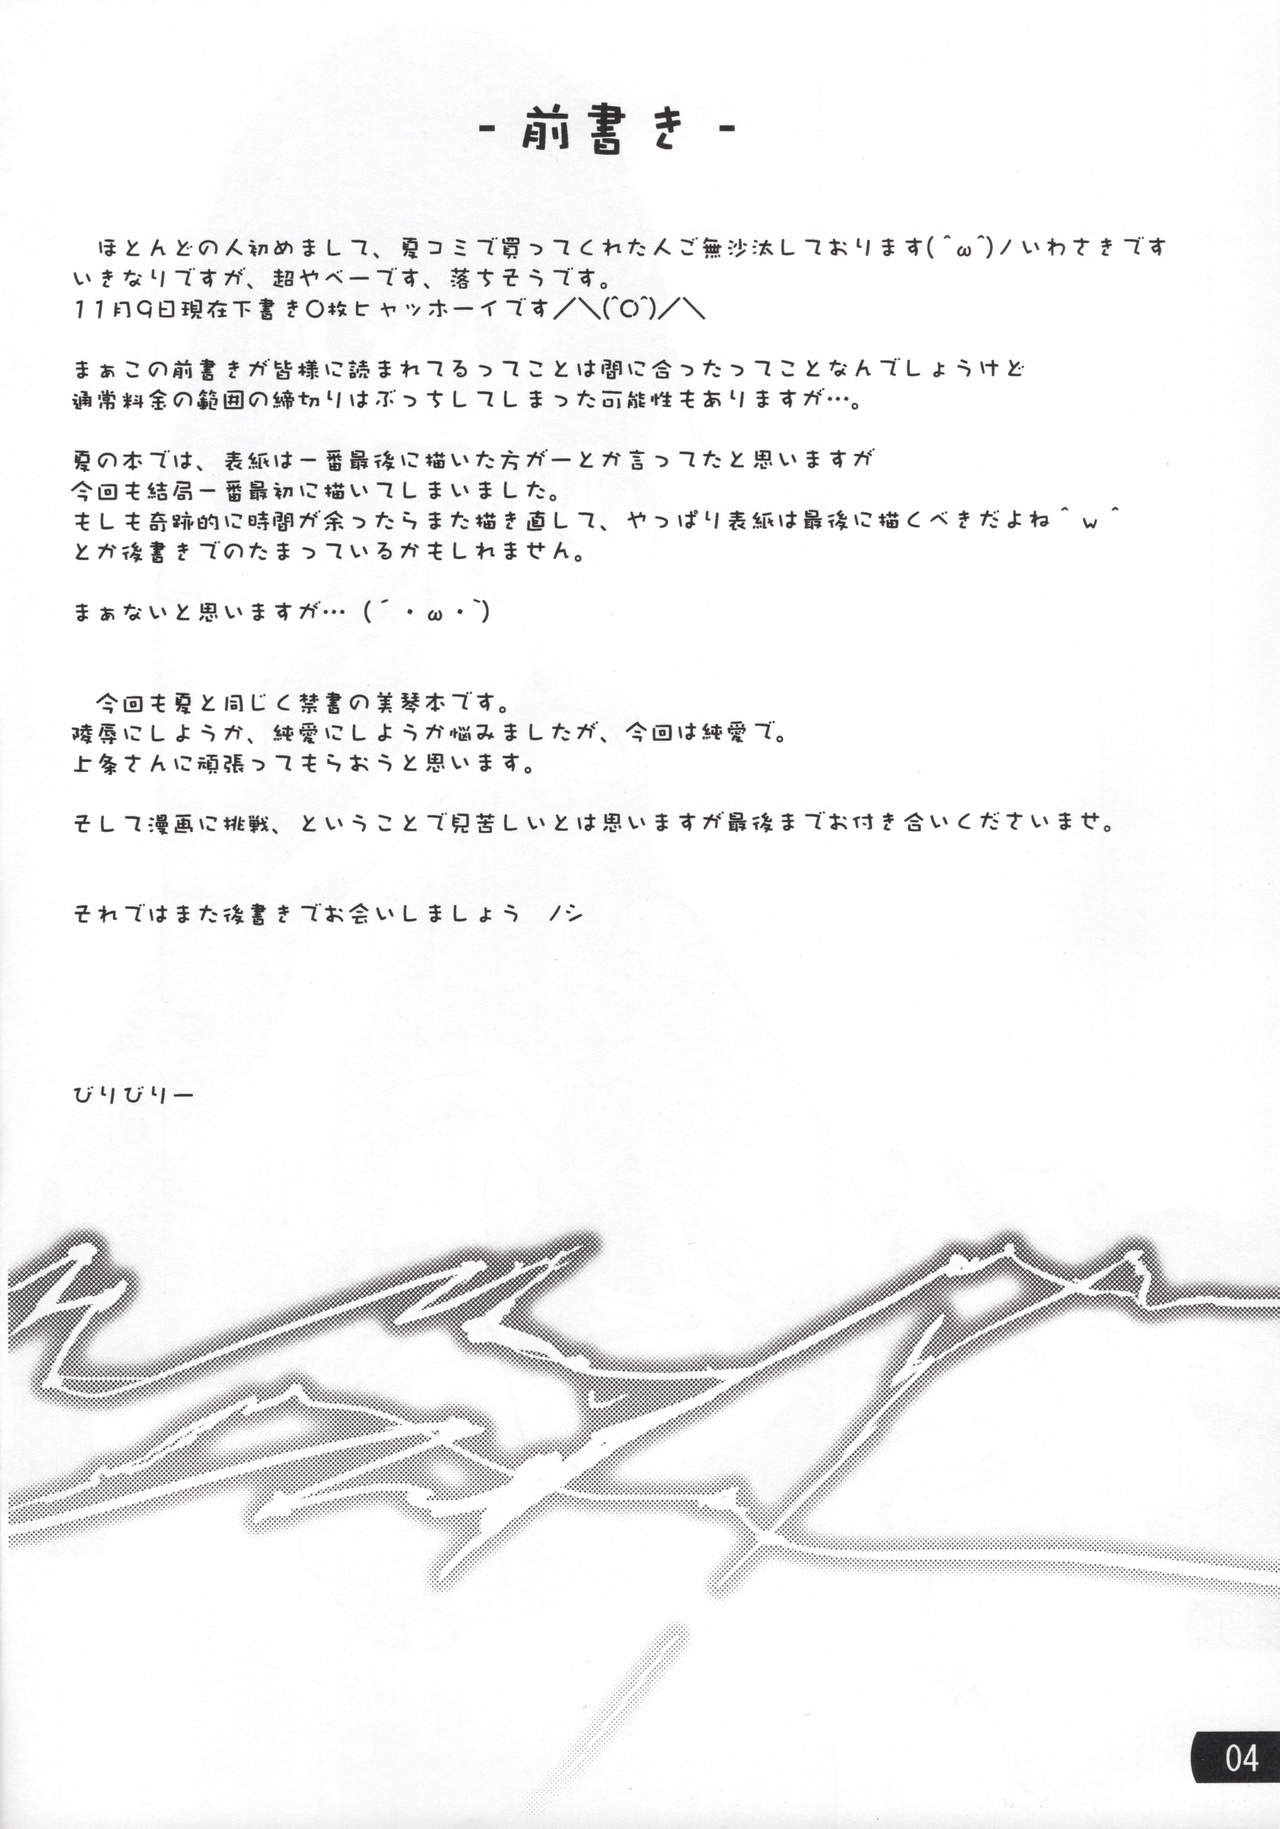 - 前書き -
ほとんどの人初めまして、夏コミで買ってくれた人ご無沙汰しております(^ω^)ノいわさきです
いきなりですが、超やべーです、落ちそうです。
11月9日現在下書き0枚ヒャッホーイです／＼(^O^)／＼
まぁこの前書きが皆様に読まれてるってことは間に合ったってことなんでしょうけど
通常料金の範囲の締切りはぶっちしてしまった可能性もありますが…。
夏の本では、表紙は一番最後に描いた方がーとか言ってたと思いますが
今回も結局一番最初に描いてしまいました。
もしも奇跡的に時間が余ったらまた描き直して、やっぱり表紙は最後に描くべきだよね＾ｗ＾
とか後書きでのたまっているかもしれません。
まぁないと思いますが… (´・ω・`)
今回も夏と同じく禁書の美琴本です。
陵辱にしようか、純愛にしようか悩みましたが、今回は純愛で。
上条さんに頑張ってもらおうと思います。
そして漫画に挑戦、ということで見苦しいとは思いますが最後までお付き合いくださいませ。
それではまた後書きでお会いしましょう　ノシ
びりびりー
04